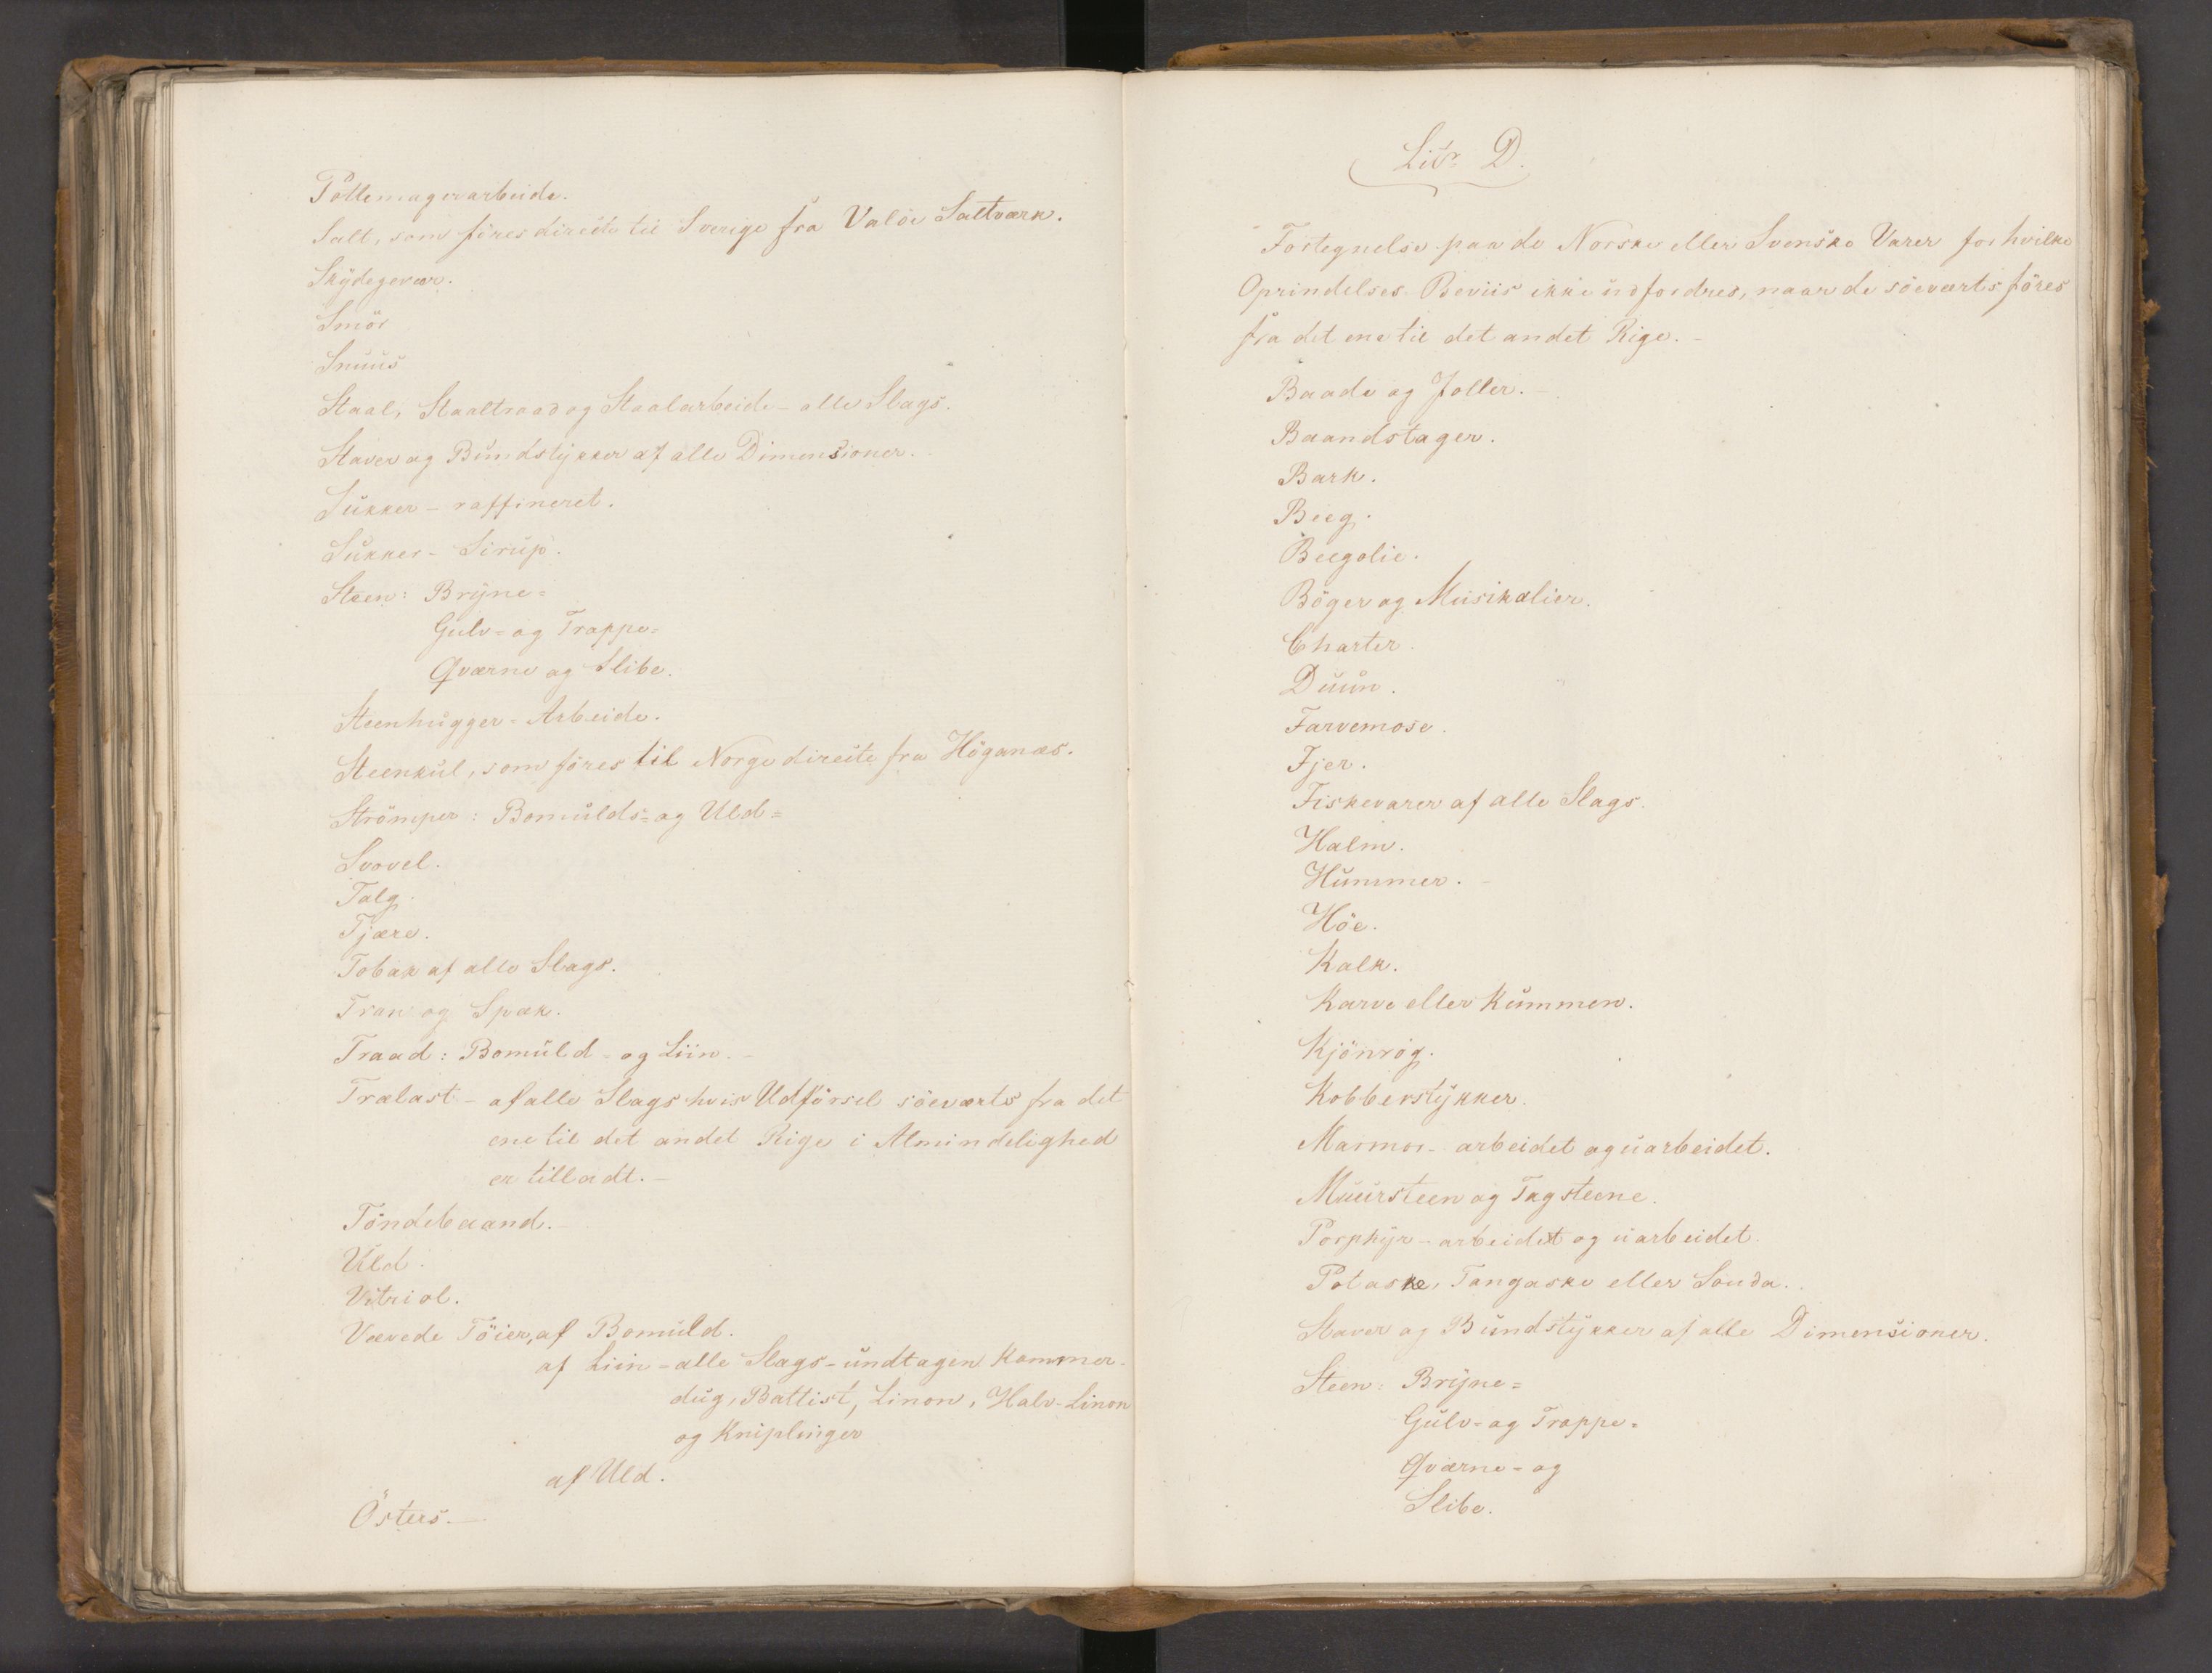 Pottemagerarbeide.
Salt, som föres directe til Sverige fra Valöe Saltværk.
Skydegevær.
Smör
Snuus
Staal, Staaltraad og Staalarbeide - alle Slags.
Staver og Bundstykker af alle Dimensioner.
Sukker - raffineret.
Sukker - Sirup.
Steen: Bryne=
Gulv= og Trappe=
Qværne og Slibe.
Steenhugger= Arbeide.
Steenkul, som föres til Norge directe fra Höganæs.
Strömper: Bomulds= og Uld=
Svovel.
Talg.
Tjære.
Tobak af alle Slags.
Tran og Spæk.
Traad: Bomuld - og Liin. -
Trælast - af alle Slags hvis Udförsel söeværts fra det
ene til det andet Rige i Almindelighed
er tilladt. -
Töndebaand. -
Uld.
Vitriol.
Vævede Töier, af Bomuld.
af Liin - alle Slags - undtagen Kammer-
dug, Battist, Linon, Halv-Linon
og Kniplinger
af Uld.
Östers. -
Litr D.
Fortegnelse paa de Norske eller Svenske Varer for hvilke
Oprindelses-Beviis ikke udfordres, naar de söeværts föres
fra det ene til det andet Rige. -
Baade og Joller. -
Baandstager.
Bark.
Beeg.
Beegolie.
Böger og Musikalier.
Charter.
Duun.
Farvemose.
Fjer.
Fiskevarer af alle Slags.
Halm.
Hummer. -
Höe.
Kalk.
Karve eller Kummen.
Kjönrög.
Kobberstykker.
Marmor - arbeidet og uarbeidet.
Muursteen og Tagsteene.
Porphyr - arbeidet og uarbeidet.
Potaske, Tangaske eller Souda.
Staver og Bundstykker af alle Dimensioner.
Steen: Bryne=
Gulv= og Trappe=
Qværne= og
Slibe.